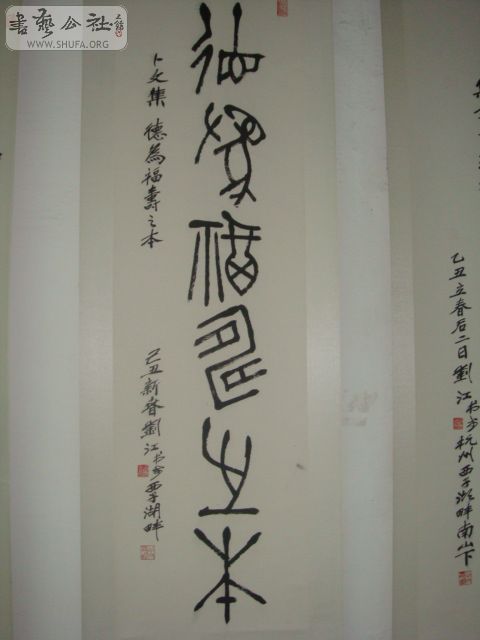 書藝公社
WWW.SHUFA.ORG
德為福壽之本
卜文集 德為福壽之本
己丑新春劉江书於西子湖畔
乙丑立春后二日劉江书於杭州西子湖畔南山下